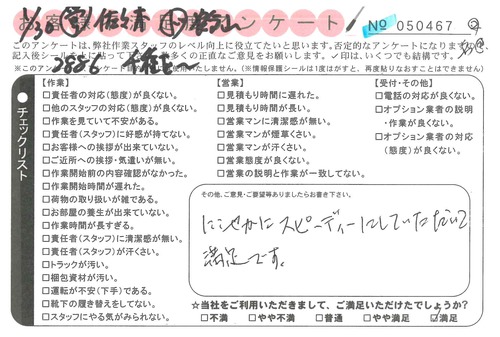 アンケート
№ 050467
このアンケートは、弊社作業スタッフのレベル向上に役立てたいと思います。否定的なアンケートになりますので、
✓印は、いくつでも結構です。
(※情報保護シールは1度はがすと、再度貼りなおすことはできません)
チェックリスト
【作業】
□責任者の対応(態度)が良くない。
□他のスタッフの対応(態度)が良くない。
□作業を見ていて不安がある。
□責任者(スタッフ)に好感が持てない。
□お客様への挨拶が出来ていない。
□ご近所への挨拶・気遣いが無い。
□作業開始前の内容確認がなかった。
□作業開始が遅れた。
□荷物の取り扱いが雑である。
□お部屋の養生が出来ていない。
□作業時間が長すぎる。
□責任者(スタッフ)に清潔感が無い。
□責任者(スタッフ)が汗くさい。
□トラックが汚い。
□梱包資材が汚い。
□運転が不安(下手)である。
□靴下の履き替えをしてない。
□スタッフにやる気がみられない。
【営業】
□見積もり時間に遅れた。
□見積もり時間が長い。
□営業マンに清潔感が無い。
□営業マンが煙草くさい。
□営業マンが汗くさい。
□営業態度が良くない。
□営業の説明と作業が一致してない。
【受付・その他】
□電話の対応が良くない。
□オプション業者の説明
・作業が良くない。
□オプション業者の対応
(態度)が良くない。
その他、ご意見・ご要望等ありましたらお書き下さい。
にこやかにスピーディーにしていただいて
満足です。
☆当社をご利用いただきまして、ご満足いただけたでしょうか?
□不満 □やや不満 □普通 □やや満足 ☑満足